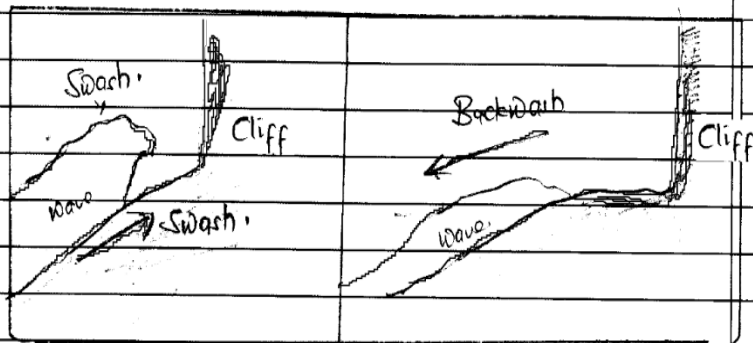 Swash.
Cliff
wave
Swash.
Backwash
Cliff
wave.